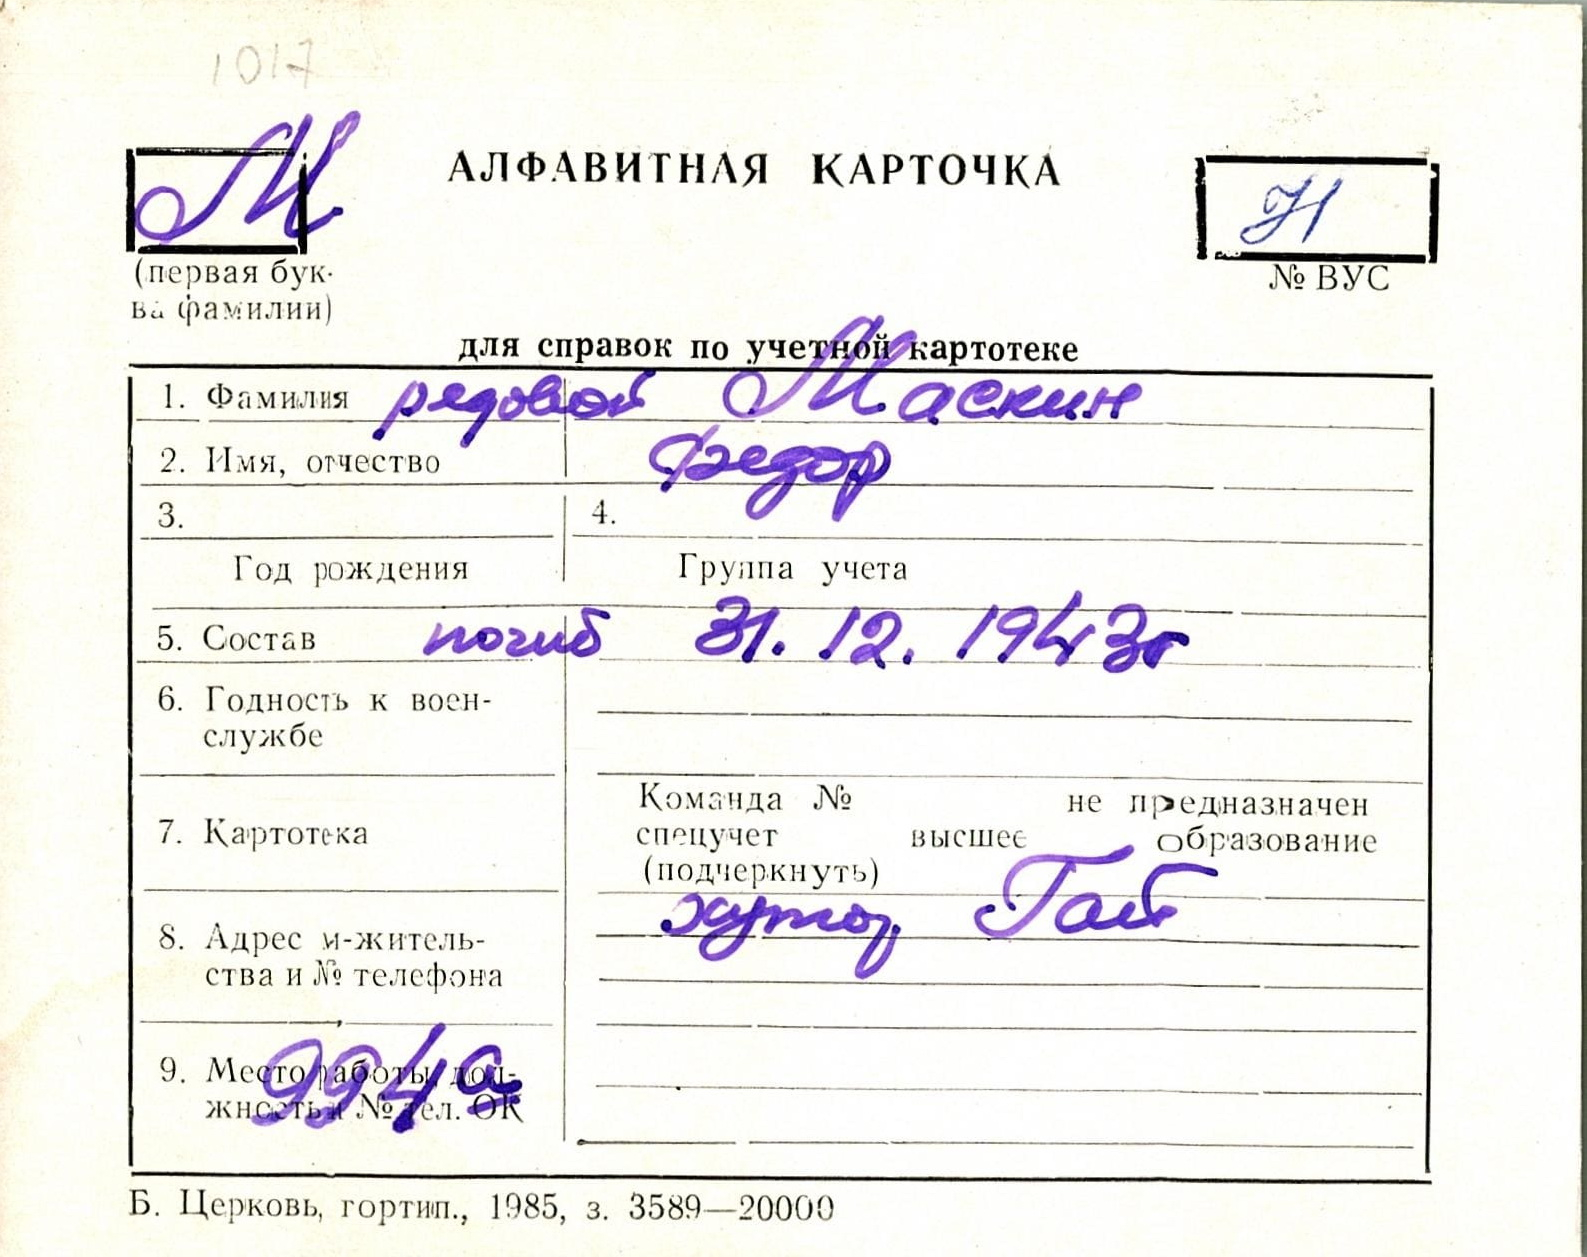 1017
М АЛФАВИТНАЯ КАРТОЧКА Н
(первая бук-
ва фамилии)
№ ВУС
для справок по учетной картотеке
1. Фамилия рядовой Маскин
2. Имя, отчество Федор
3. 4.
Год рождения Группа учета
5. Состав погиб 31. 12. 1943г
6. Годность к воен-
службе
Команда № не предназначен
7. Картотека спецучет высшее образование
(подчеркнуть)
хутор Гай
8. Адрес м-житель-
ства и № телефона
9. Место работы, дол-
жность и № тел. ОК
994а
Б. Церковь, гортип., 1985, з. 3589—20000